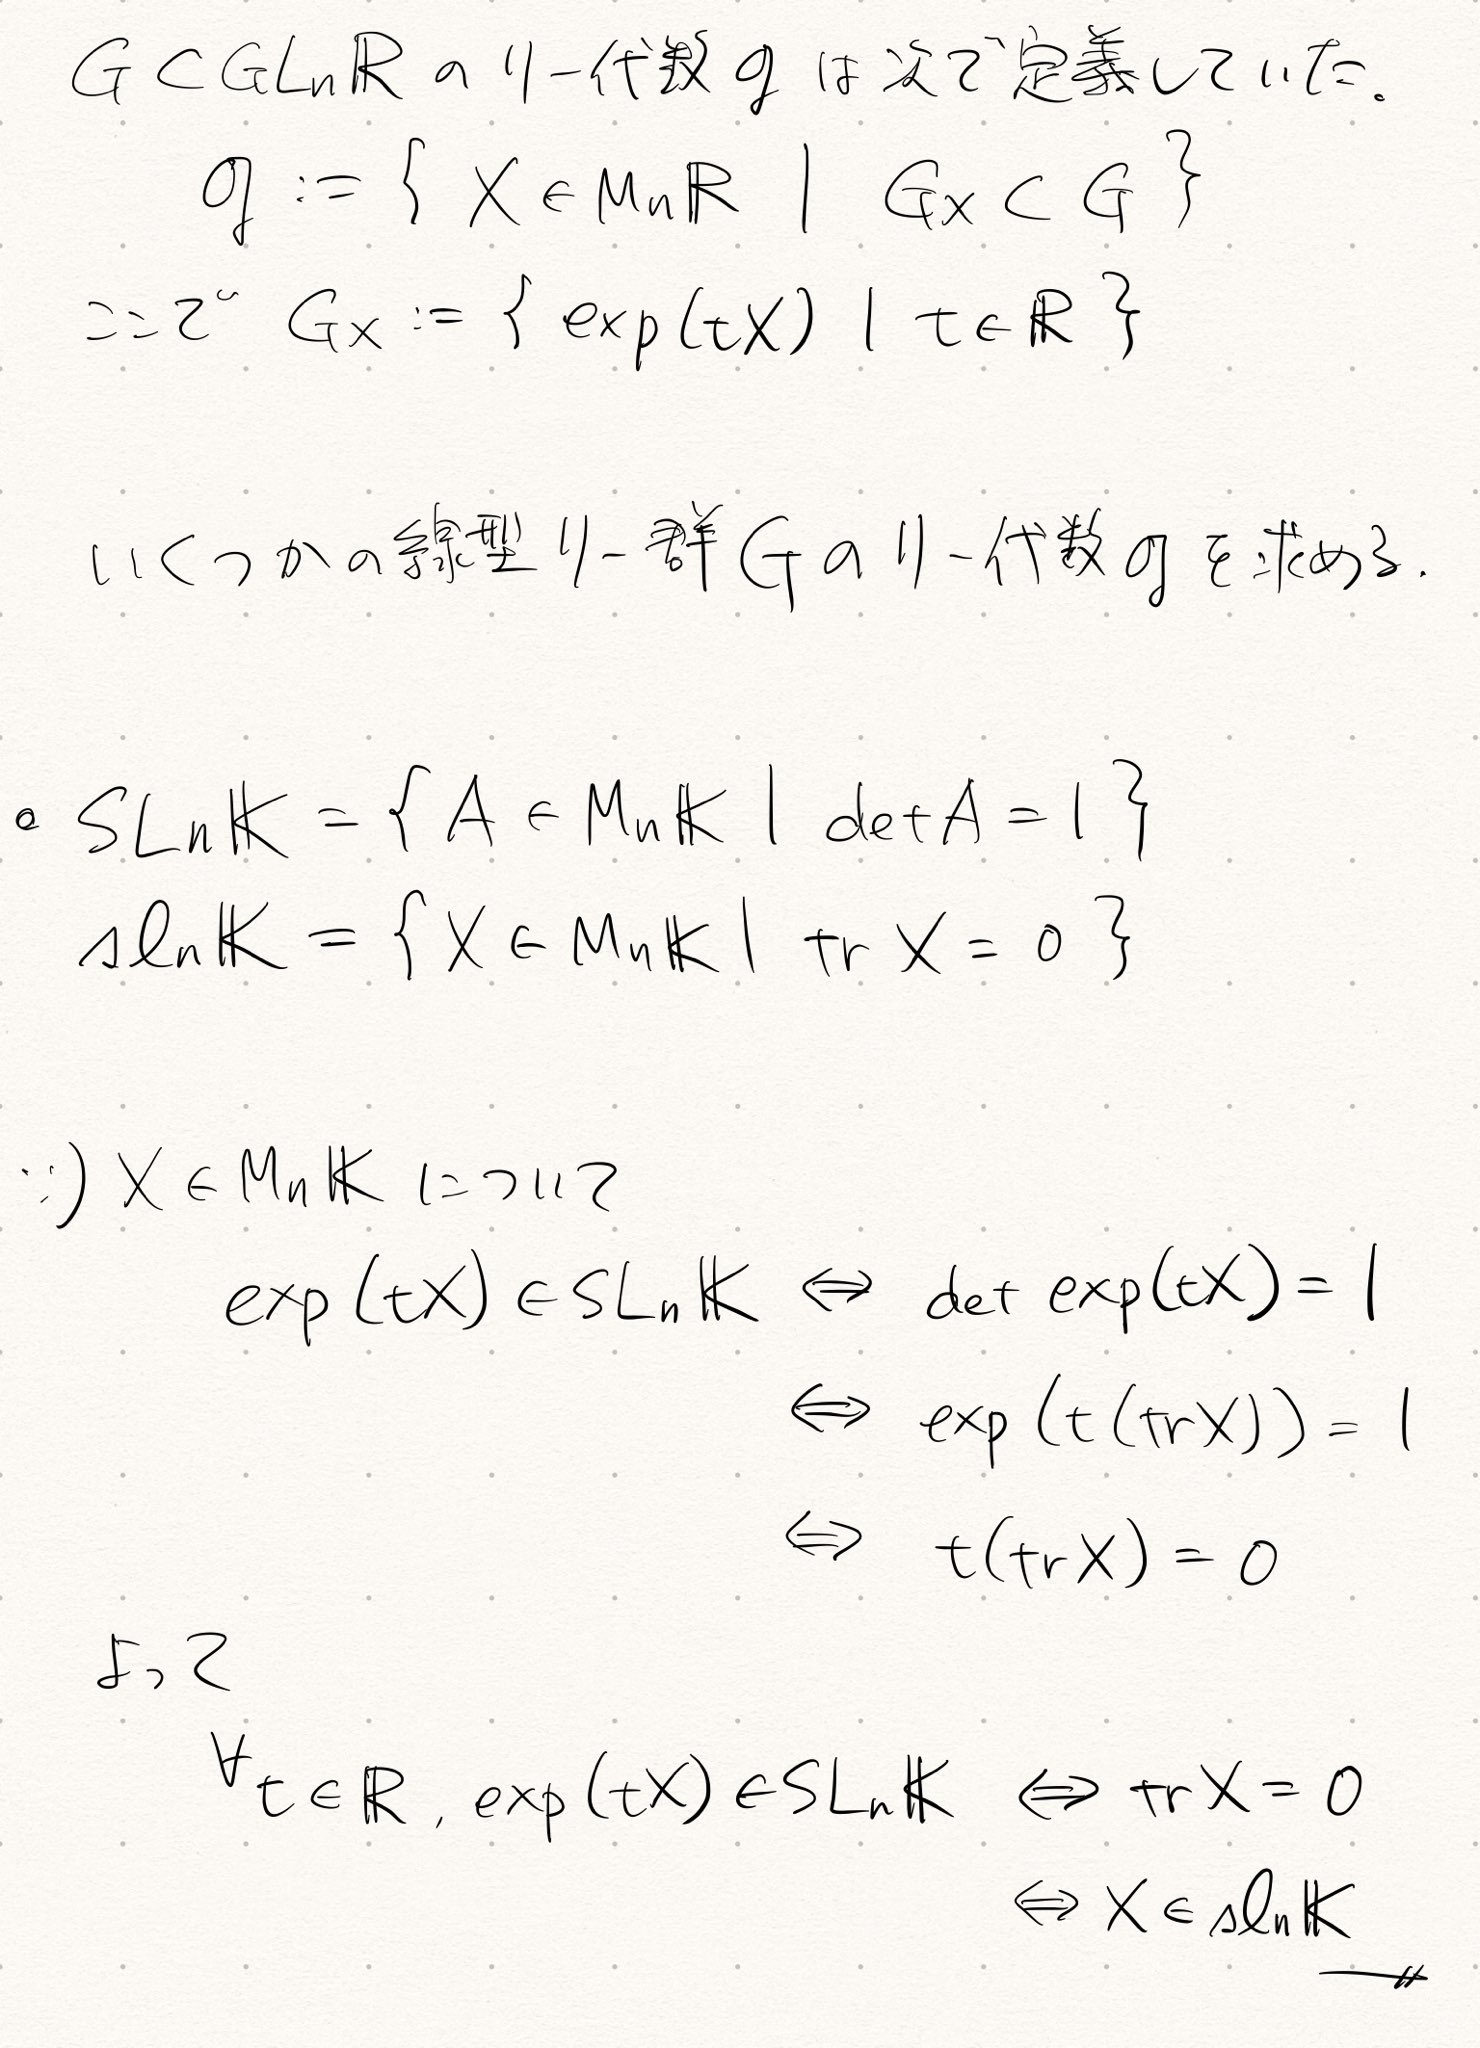 G ⊂ GLnℝ のリー代数 𝔤 は次で定義していた.
𝔤 := { X ∈ Mnℝ | G_X ⊂ G }
ここで G_X := { exp(tX) | t ∈ ℝ }
いくつかの線型リー群 G のリー代数 𝔤 を求める.
• SLn𝕂 = { A ∈ Mn𝕂 | det A = 1 }
sln𝕂 = { X ∈ Mn𝕂 | tr X = 0 }
∵) X ∈ Mn𝕂 について
exp(tX) ∈ SLn𝕂 ⇔ det exp(tX) = 1
⇔ exp(t(trX)) = 1
⇔ t(trX) = 0
よって
∀t ∈ ℝ, exp(tX) ∈ SLn𝕂 ⇔ trX = 0
⇔ X ∈ sln𝕂